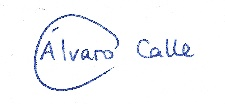 Álvaro Calle